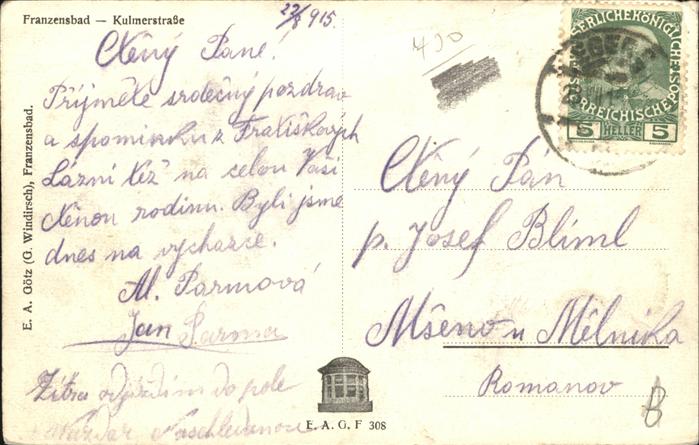 Franzensbad — Kulmerstraße
22/8 915
Ctěný Pane!
Přijměte srdečný pozdrav
a spomínku z Františkových
Lázní též na celou Vaši
ctěnou rodinu. Byli jsme
dnes na vycházce.
Al. Parmová
Jan Parma
Zítra odjíždím do pole
Nazdar
E. A. Götz (G. Windirsch), Franzensbad.
E. A. G. F 308
EGER
5 HELLER 5
Ctěný Pán
p. Josef Bliml
Mšeno u Mělníka
Romanov
B